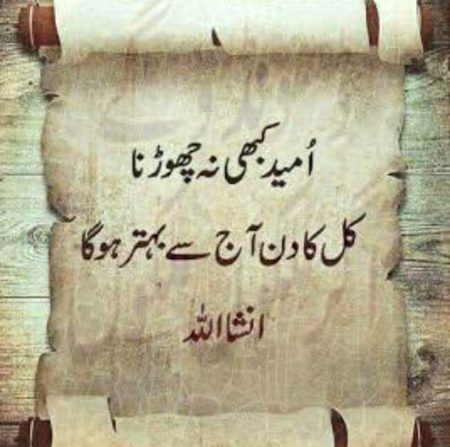 اُمید کبھی نہ چھوڑنا
کل کا دن آج سے بہتر ہوگا
انشااللہ